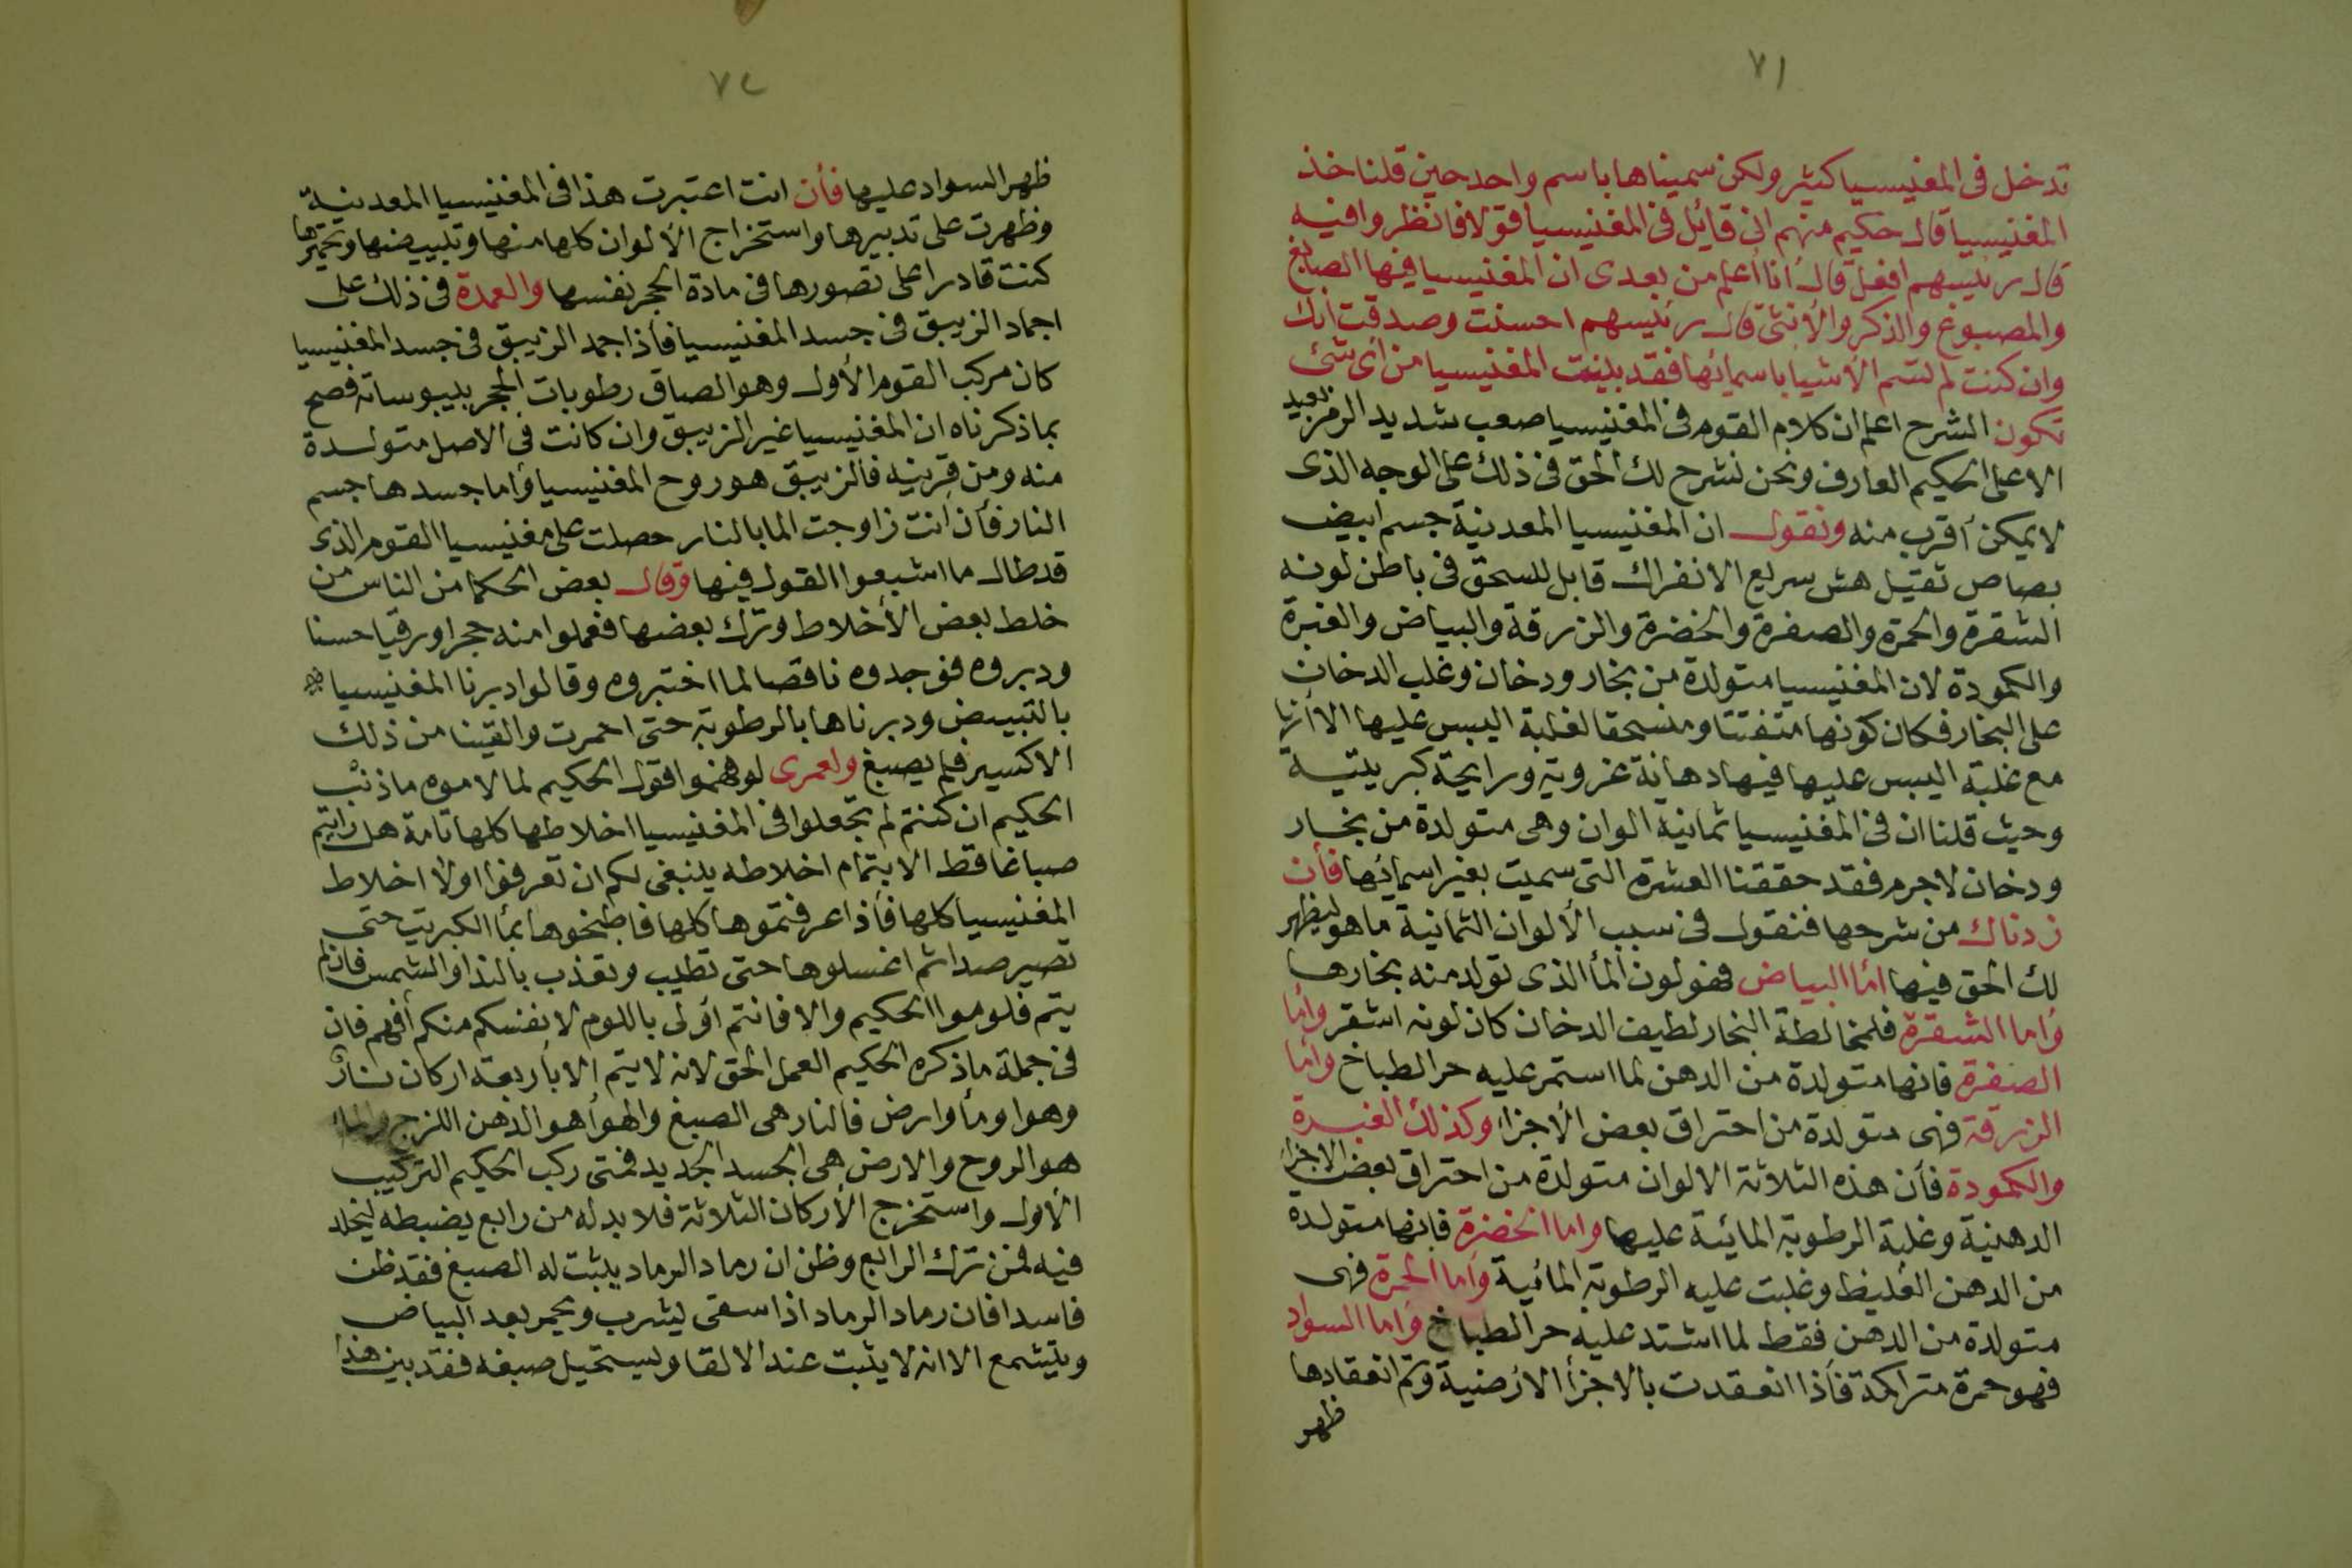 ٧١
تدخل فى المغنيسيا كثير ولكن سميناها باسم واحد حين قلنا خذ
المغنيسيا قال حكيم منهم انى قايل فى المغنيسيا قولا فانظروا فيه
قال رئيسهم افعل قال انا اعلم من بعدى ان المغنيسيا فيها الصابغ
والمصبوغ والذكر والأنثى قال رئيسهم احسنت وصدقت انك
وان كنت لم تسم الأشيا باسمائها فقد بينت المغنيسيا من اى شئ
تكون الشرح اعلم ان كلام القوم فى المغنيسيا صعب شديد الرمز بعيد
الا على الحكيم العارف ونحن نشرح لك الحق فى ذلك على الوجه الذى
لا يمكن أقرب منه ونقول ان المغنيسيا المعدنية جسم ابيض
بصاص ثقيل هش سريع الانفراك قابل للسحق فى باطن لونه
الشقرة والحمرة والصفرة والخضرة والزرقة والبياض والغبرة
والكمودة لان المغنيسيا متولدة من بخار ودخان وغلب الدخان
على البخار فكان كونها متفتتا ومنسحقا لغلبة اليبس عليها الا أنها
مع غلبة اليبس عليها فيها دهانة غروية ورايحة كبريتية
وحيث قلنا ان فى المغنيسيا ثمانية الوان وهى متولدة من بخار
ودخان لاجرم فقد حققنا العشرة التى سميت بغير اسمائها فأن
زدناك من شرحها فنقول فى سبب الألوان الثمانية ما هو ليظهر
لك الحق فيها اما البياض فهو لون المأ الذى تولد منه بخارها
وأما الشقرة فلمخالطة البخار لطيف الدخان كان لونه اشقر وأما
الصفرة فانها متولدة من الدهن لما استمر عليه حر الطباخ وأما
الزرقة فهى متولدة من احتراق بعض الأجزاء وكذلك الغبرة
والكمودة فأن هذه الثلاثة الالوان متولدة من احتراق بعض الاجزاء
الدهنية وغلبة الرطوبة المائية عليها واما الخضرة فانها متولدة
من الدهن الغليظ وغلبت عليه الرطوبة المائية وأما الحمرة فهى
متولدة من الدهن فقط لما اشتد عليه حر الطباخ وأما السواد
فهو حمرة متراكمة فأذا انعقدت بالاجزأ الارضية وتم انعقادها
ظهر
٧٢
ظهر السواد عليها فأن انت اعتبرت هذا فى المغنيسيا المعدنية
وظهرت على تدبيرها واستخراج الألوان كلها منها وتبييضها وتحميرها
كنت قادرا على تصورها فى مادة الحجر نفسها والعمدة فى ذلك على
اجماد الزيبق فى جسد المغنيسيا فأذا جمد الزيبق فى جسد المغنيسيا
كان مركب القوم الأول وهو الصاق رطوبات الحجر بيبوساته فصح
بما ذكرناه ان المغنيسيا غير الزيبق وان كانت فى الاصل متولدة
منه ومن قرينه فالزيبق هو روح المغنيسيا وأما جسدها جسم
النار فأن انت زاوجت الما بالنار حصلت على مغنيسيا القوم الذى
قد طال ما اشبعوا القول فيها وقال بعض الحكما من الناس من
خلط بعض الأخلاط وترك بعضها فعملوا منه حجرا ورقيا حسنا
ودبروه فوجدوه ناقصا لما اختبروه وقالوا دبرنا المغنيسيا
بالتبييض ودبرناها بالرطوبة حتى احمرت والقينا من ذلك
الاكسير فلم يصبغ ولعمرى لو فهموا قول الحكيم لما لاموه ما ذنب
الحكيم ان كنتم لم تجعلوا فى المغنيسيا اخلاطها كلها تامة هل رايتم
صباغا قط الا بتمام اخلاطه ينبغى لكم ان تعرفوا اولا اخلاط
المغنيسيا كلها فأذا عرفتموها كلها فاطبخوها بمأ الكبريت حتى
تصير صدا ثم اغسلوها حتى تطيب وتعذب بالندا والشمس فان لم
يتم فلوموا الحكيم والا فانتم أولى باللوم لانفسكم منكم أفهم فان
فى جملة ما ذكره الحكيم العمل الحق لانه لا يتم الا بأربعة اركان نار
وهوا ومأ وارض فالنار هى الصبغ والهوأ هو الدهن اللزج والماء
هو الروح والارض هى الجسد الجديد فمتى ركب الحكيم التركيب
الأول واستخرج الأركان الثلاثة فلا بد له من رابع يضبطه ليخلد
فيه فمن ترك الرابع وظن ان رماد الرماد يثبت له الصبغ فقد ظن
فاسدا فان رماد الرماد اذا سقى ليشرب ويحمر بعد البياض
ويتشمع الا انه لا يثبت عند الالقا ويستحيل صبغه فقد بين هذا